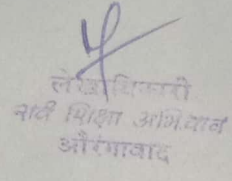 लेखाधिकारी
सर्व शिक्षा अभियान
औरंगाबाद